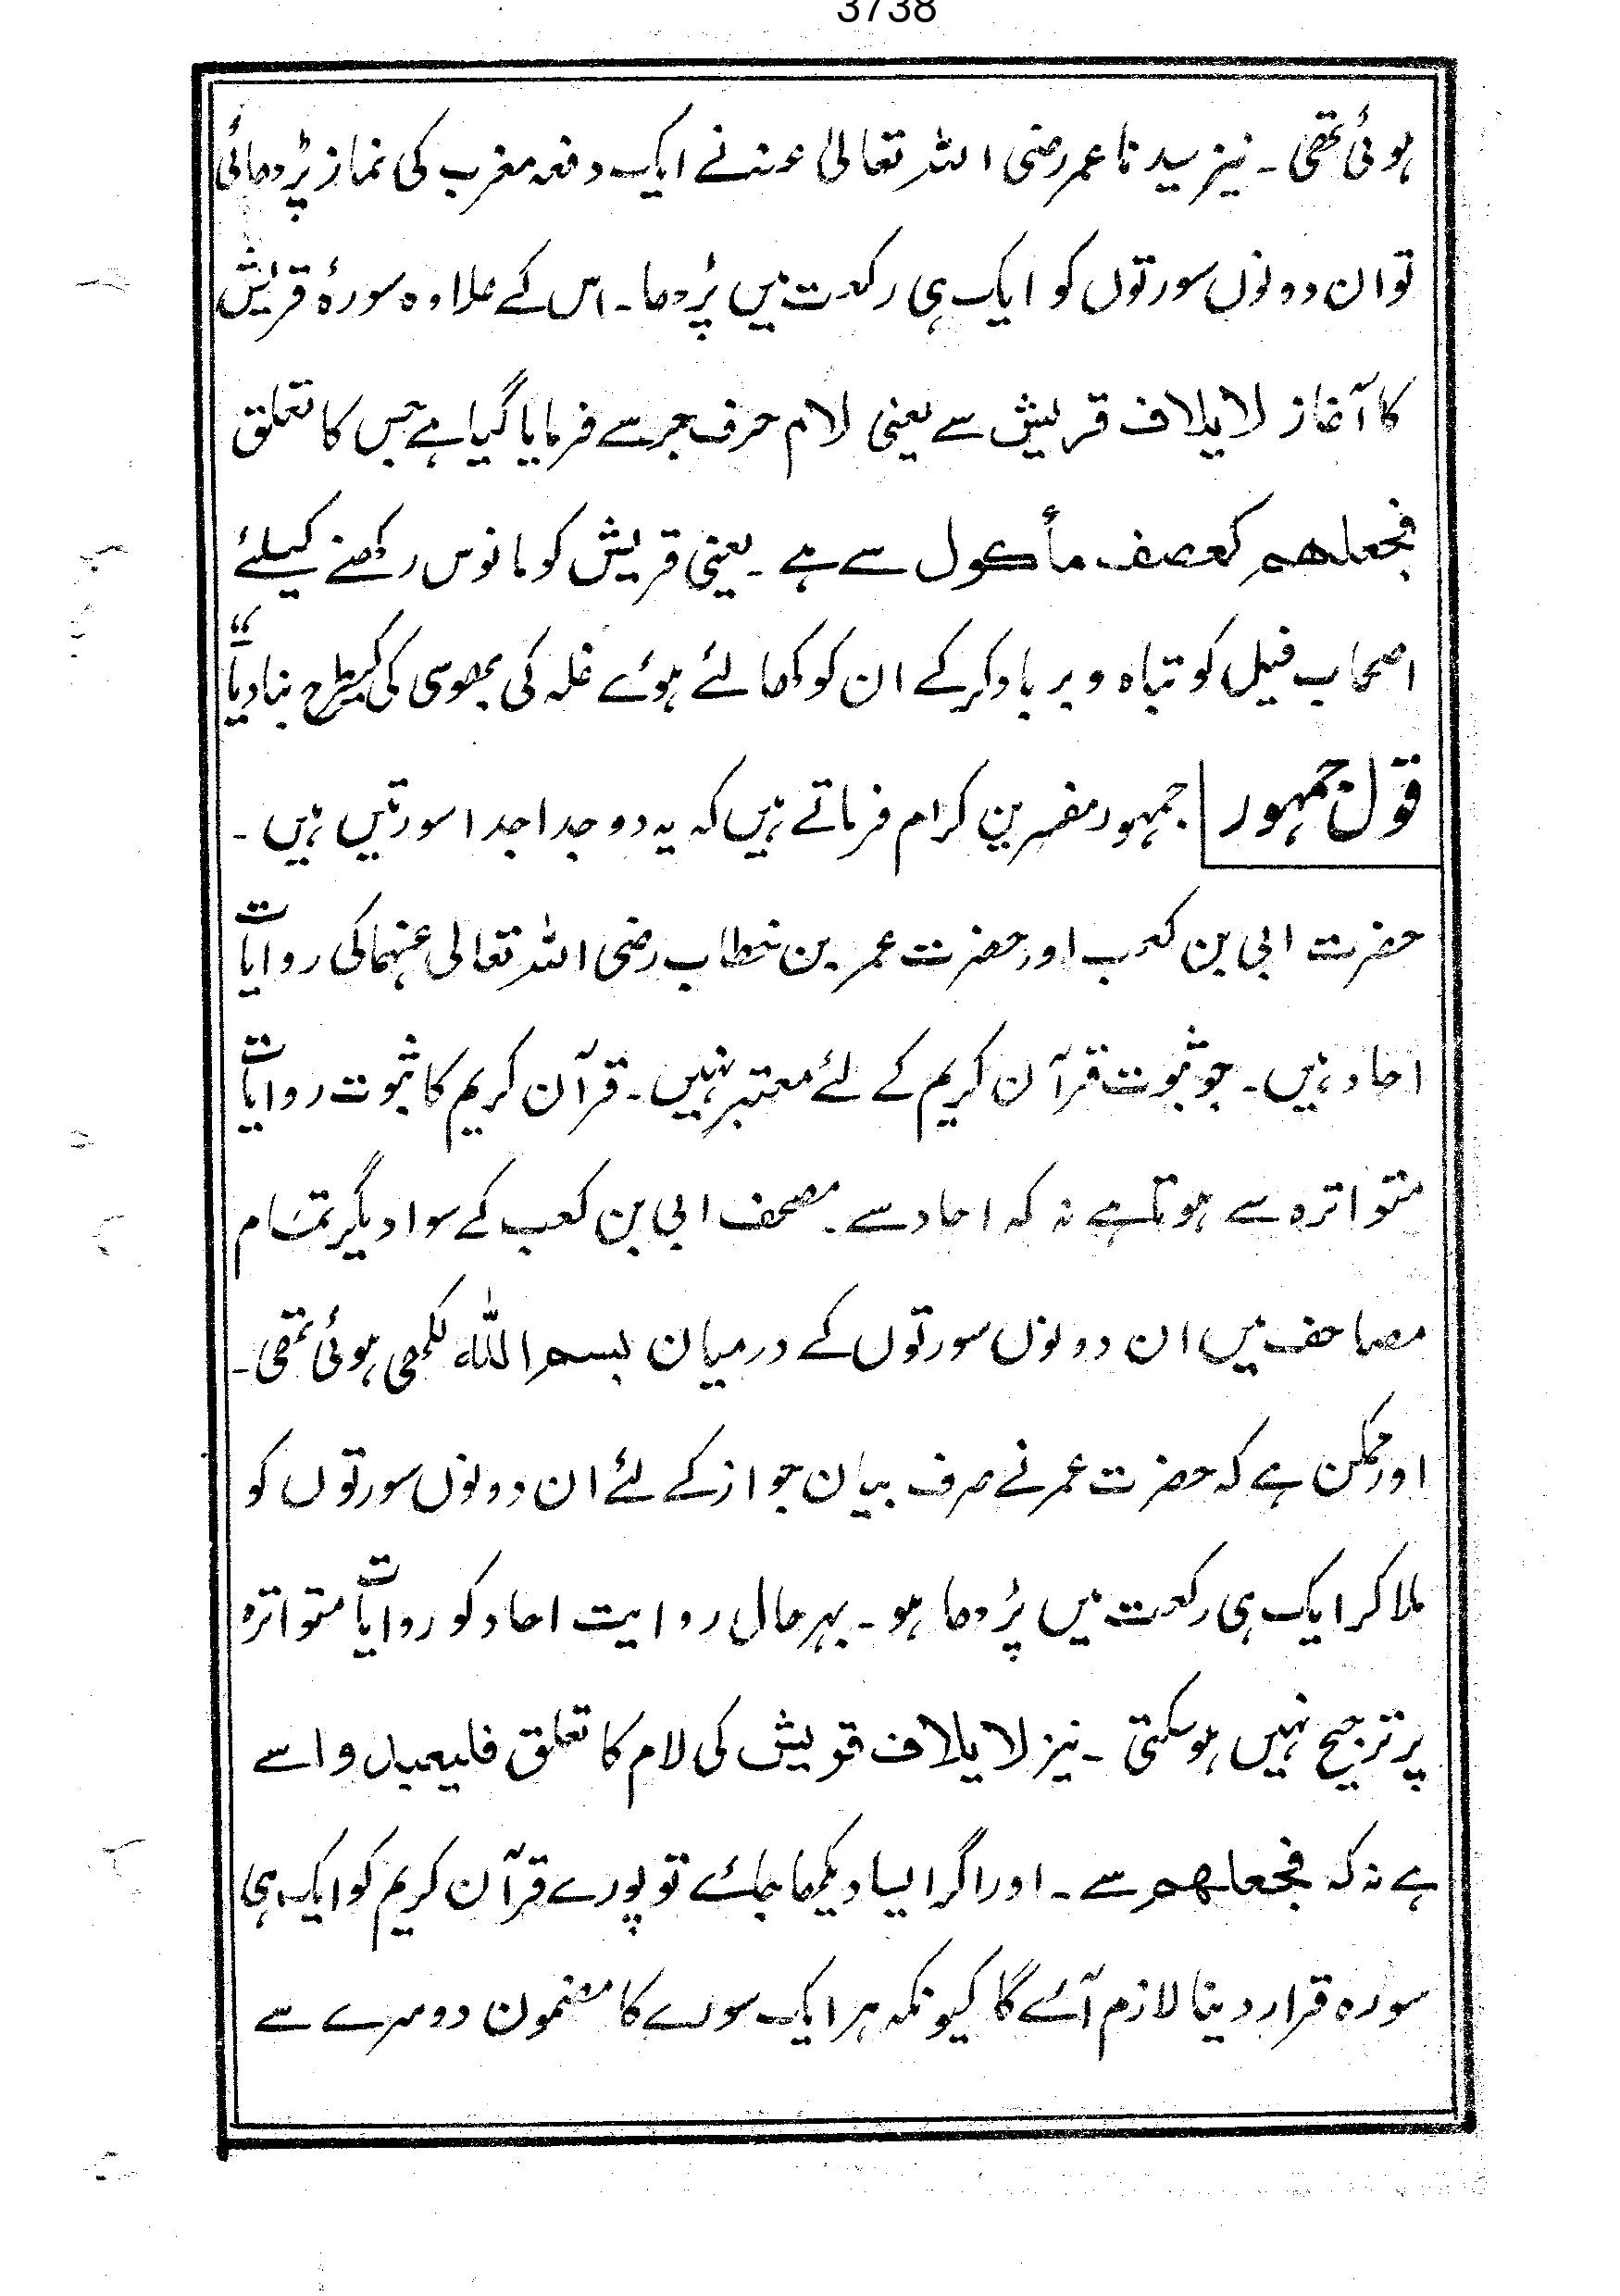 3738
ہوئی تھی ۔ نیز سیدنا عمر رضی اللہ تعالیٰ عنہ نے ایک دفعہ مغرب کی نماز پڑھائی
تو ان دونوں سورتوں کو ایک ہی رکعت میں پڑھا ۔ اس کے علاوہ سورۂ قریش
کا آغاز لایلاف قریش سے یعنی لام حرف جر سے فرمایا گیا ہے جس کا تعلق
فجعلھم کعصف مأکول سے ہے ۔ یعنی قریش کو مانوس رکھنے کیلئے
اصحاب فیل کو تباہ و برباد کر کے ان کو کھائے ہوئے غلہ کی بھوسی کی طرح بنا دیا"
قول جمہور جمہور مفسرین کرام فرماتے ہیں کہ یہ دو جدا جدا سورتیں ہیں ۔
حضرت ابی بن کعب اور حضرت عمر بن خطاب رضی اللہ تعالی عنہما کی روایات
احاد ہیں ۔ جو ثبوت قرآن کریم کے لئے معتبر نہیں ۔ قرآن کریم کا ثبوت روایات
متواترہ سے ہوتا ہے نہ کہ احاد سے ۔ مصحف ابی بن کعب کے سوا دیگر تمام
مصاحف میں ان دونوں سورتوں کے درمیان بسم اللہ لکھی ہوئی تھی ۔
اور ممکن ہے کہ حضرت عمر نے صرف بیان جواز کے لئے ان دونوں سورتوں کو
ملا کر ایک ہی رکعت میں پڑھا ہو ۔ بہرحال روایت احاد کو روایات متواترہ
پر ترجیح نہیں ہو سکتی ۔ نیز لایلاف قریش کی لام کا تعلق فلیعبدوا سے
ہے نہ کہ فجعلھم سے ۔ اور اگر ایسا دیکھا جائے تو پورے قرآن کریم کو ایک ہی
سورہ قرار دینا لازم آئے گا کیونکہ ہر ایک سورے کا مضمون دوسرے سے